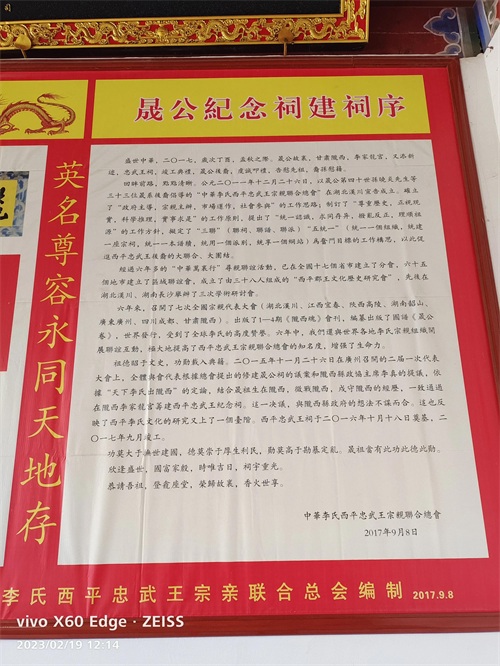 晟公紀念祠建祠序
英名尊容永同天地存
盛世中華，二〇一七，歲次丁酉，孟秋之際。晟公故裏，甘肅隴西，李家龍宮，又添新
途，忠武王祠，竣工典禮，晟公後裔，虔誠叩禮，告慰先祖，喬孫慰籍。
回眸前路，點點清晰。公元二〇一一年十二月二十六日，以晟公第四十世孫曉炎先生等
三十三位晟系後裔倡導的"中華李氏西平忠武王宗親聯合總會"在湖北漢川宣告成立。確立
了"政府主導，宗親主辦，市場運作，社會參與"的工作思路；制訂了"尊重歷史，正視現
實，科學推理，實事求是"的工作原則，提出了"統一認識，求同存异，撥亂反正，理順祖
源"的工作方針，擬定了"三聯"（聯祠、聯譜、聯派）"五統一"（統一一個組織，統建
一座宗祠，統一一本譜牒，統用一個派別，統享一個網站）為奮鬥目標的工作構思，以此促
進西平忠武王後裔的大聯合、大團結。
經過六年多的"中華萬裏行"尋親聯誼活動，已在全國十七個省市建立了分會，六十五
個地市建立了區域聯誼會，成立了由三十八人組成的"西平郡王文化歷史研究會"，先後在
湖北漢川，湖南長沙舉辦了三次學術研討會。
六年來，召開了七次全國宗親代表大會（湖北漢川、江西宜春、陝西高陵、湖南韶山、
廣東廣州、四川成都、甘肅隴西）。出版了1—4期《隴西魂》會刊，編纂出版了國譜《晟公
卷》，世界發行，受到了全球李氏的高度贊譽。六年中，我們還與世界各地李氏宗親組織開
展聯誼互動，極大地提高了西平忠武王宗親聯合總會的知名度，增强了生命力。
祖德昭于史，功勛載入典籍。二〇一五年十一月二十六日在廣州召開的二届一次代表
大會上，全體與會代表根據總會提出的修建晟公祠的議案和隴西縣政協主席李真的提議，依
據"天下李氏出隴西"的定論，結合晟祖生在隴西，微戰隴西，戍守隴西的經歷，一致通過
在隴西李家龍宮籌建西平忠武王紀念祠。這一决議，與隴西縣政府的想法不謀而合。這也反
映了西平李氏文化的研究又上了一個臺階。西平忠武王祠于二〇一六年十月十八日奠基，二
〇一七年九月竣工。
功莫大于濟世建國，德莫崇于厚生利民，勛莫高于勘暴定亂。晟祖當有此功此德此勛。
欣逢盛世，國富家殷，時唯吉日，祠宇重光。
恭請吾祖，登龕座堂，榮歸故裏，香火世享。
中華李氏西平忠武王宗親聯合總會
2017年9月8日
李氏西平忠武王宗亲联合总会编制 2017.9.8
vivo X60 Edge · ZEISS
2023/02/19 12:14